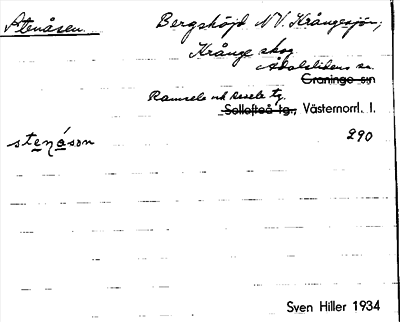 Stenåsen
Bergshöjd NV. Krångesjön,
Krånge skog
Ådalslidens sn.
Graninge sn
Ramsele och Resele tg.
Sollefteå tg., Västernorrl. l.
stenåson
290
Sven Hiller 1934